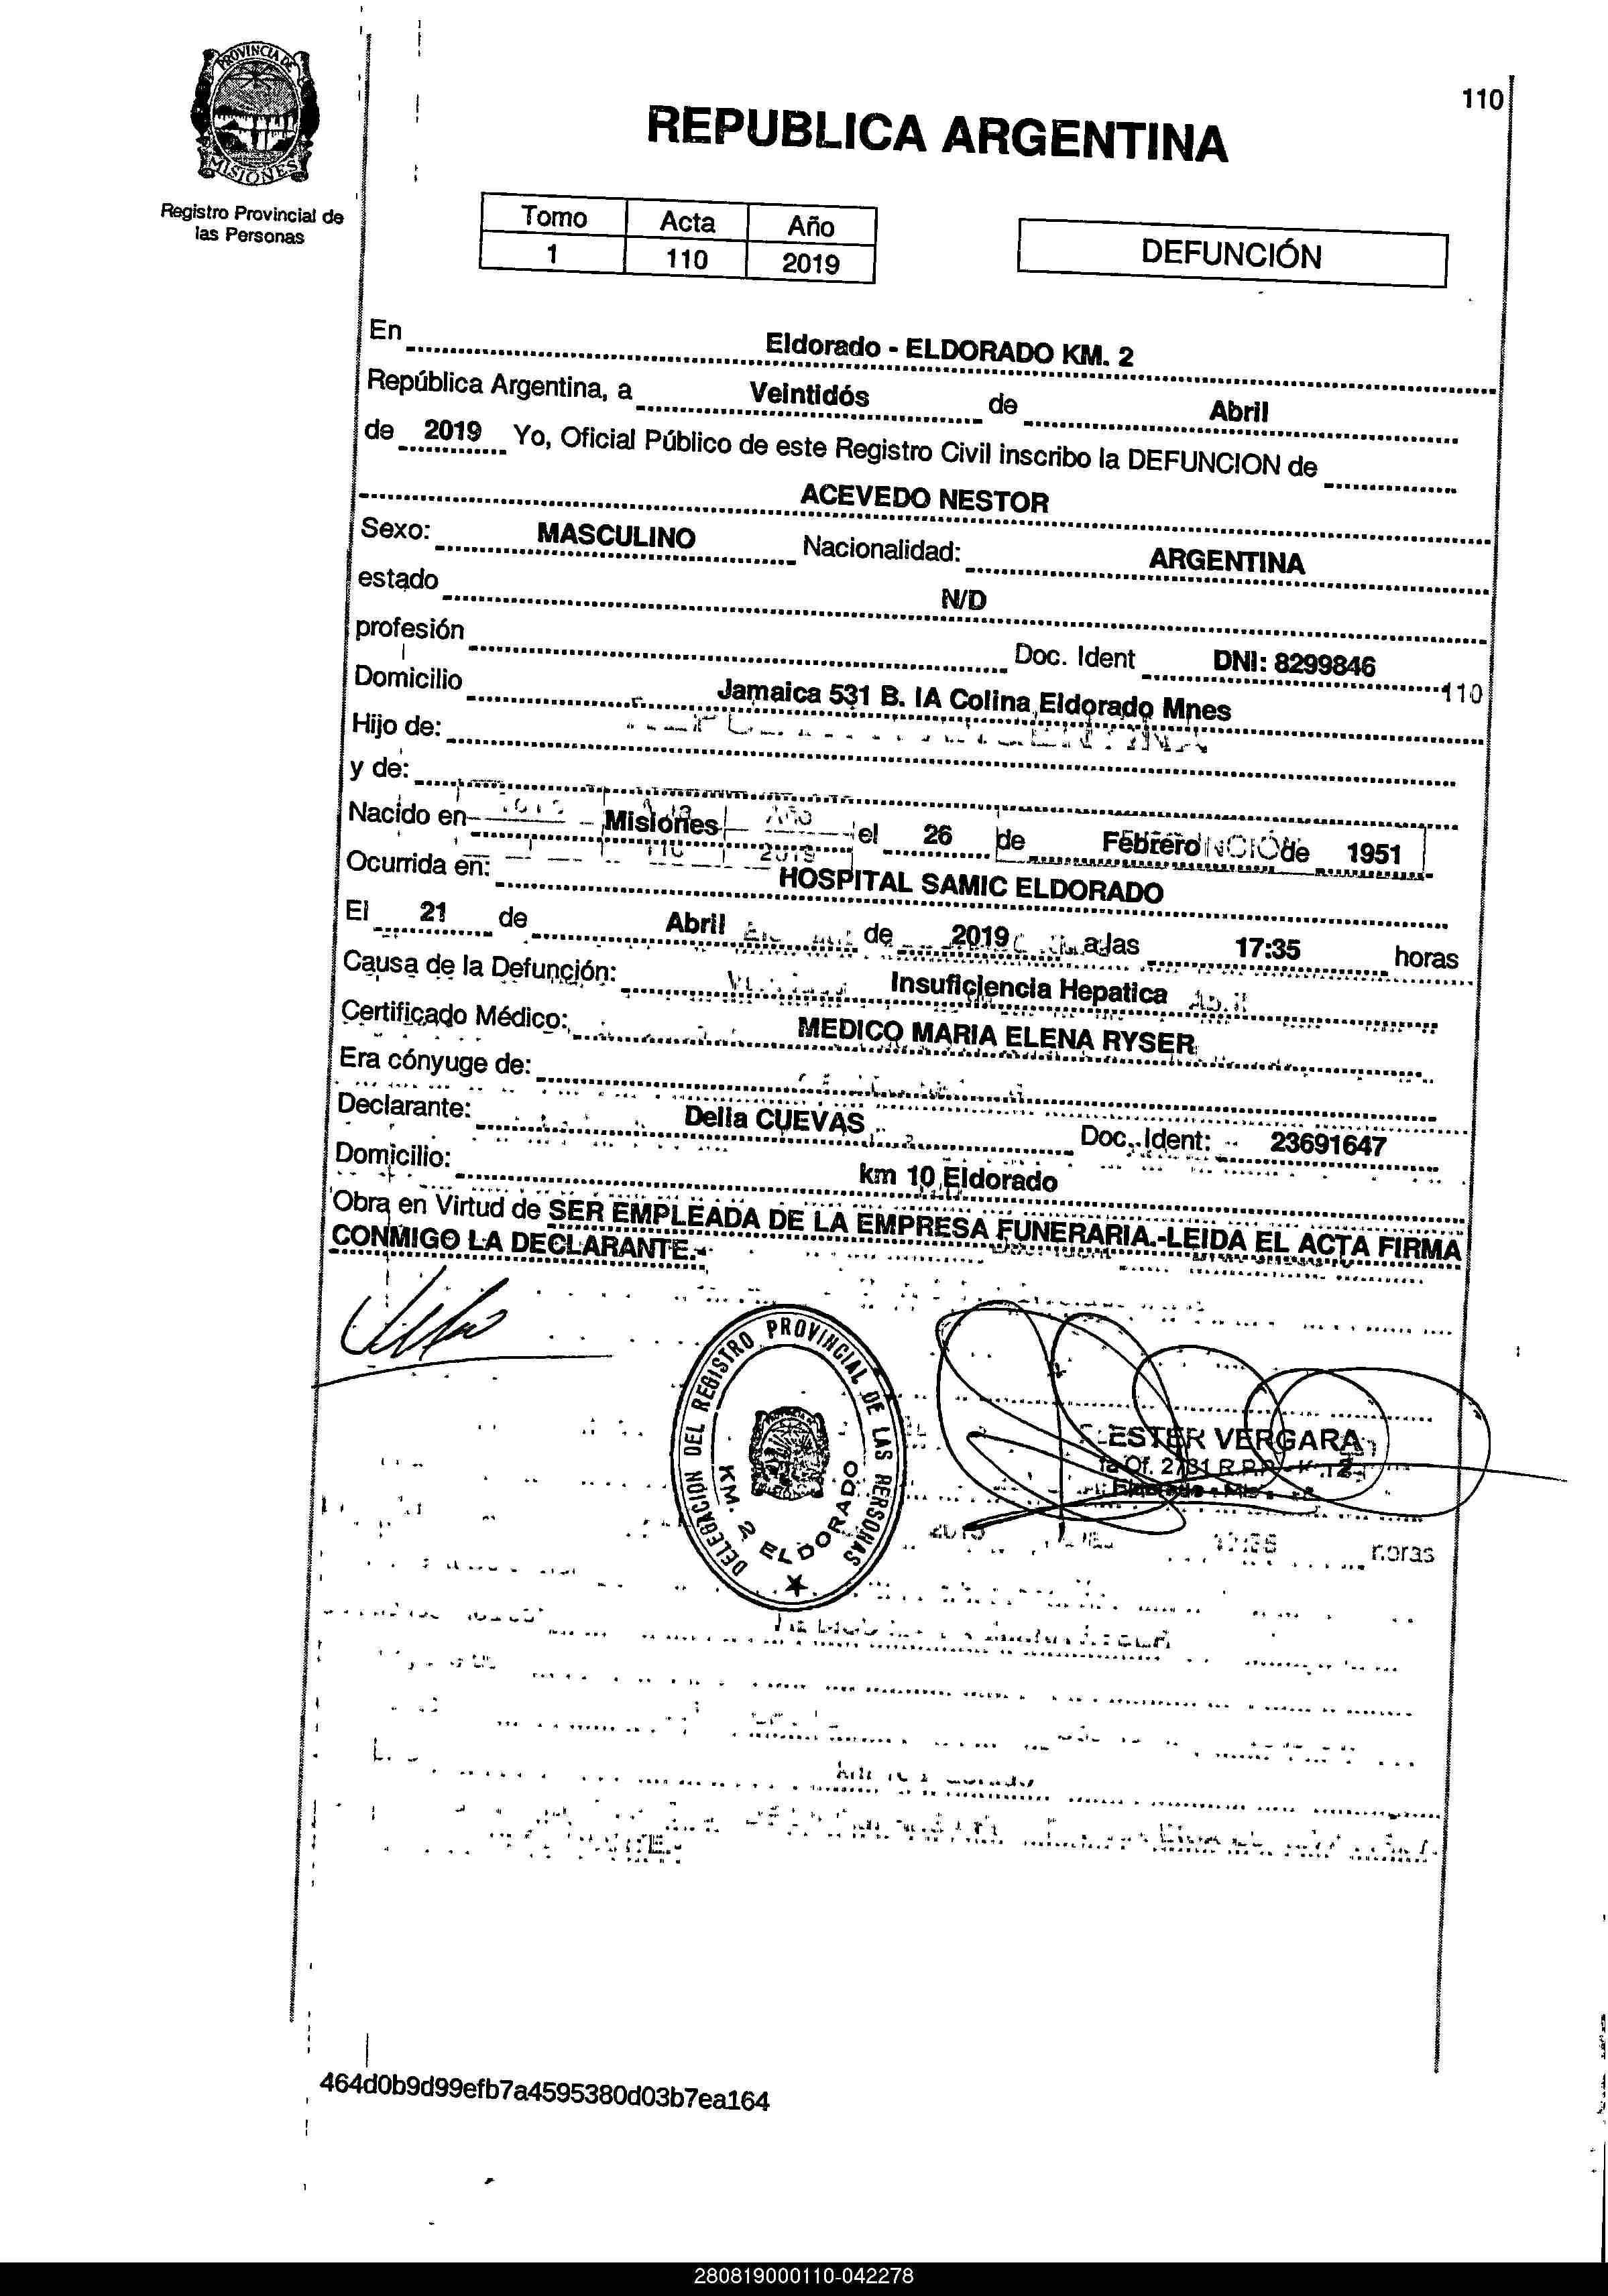 PROVINCIA DE
MISIONES
Registro Provincial de
las Personas
110
REPUBLICA ARGENTINA
Tomo Acta Año
1 110 2019
DEFUNCIÓN
En Eldorado - ELDORADO KM. 2
República Argentina, a Veintidós de Abril
de 2019 Yo, Oficial Público de este Registro Civil inscribo la DEFUNCION de
ACEVEDO NESTOR
Sexo: MASCULINO Nacionalidad: ARGENTINA
estado N/D
profesión Doc. Ident DNI: 8299846
110
Domicilio Jamaica 531 B. lA Colina Eldorado Mnes
Hijo de:
y de:
Nacido en Misiones el 26 de Febrero de 1951
Ocurrida en: HOSPITAL SAMIC ELDORADO
El 21 de Abril de 2019 a las 17:35 horas
Causa de la Defunción: Insuficiencia Hepatica
Certificado Médico: MEDICO MARIA ELENA RYSER
Era cónyuge de:
Declarante: Delia CUEVAS Doc. Ident: 23691647
Domicilio: km 10 Eldorado
Obra en Virtud de SER EMPLEADA DE LA EMPRESA FUNERARIA.-LEIDA EL ACTA FIRMA
CONMIGO LA DECLARANTE.-
DELEGACION DEL REGISTRO PROVINCIAL DE LAS PERSONAS
KM. 2 ELDORADO
ESTER VERGARA
Of. 2781 R.P.P.
horas
464d0b9d99efb7a4595380d03b7ea164
280819000110-042278